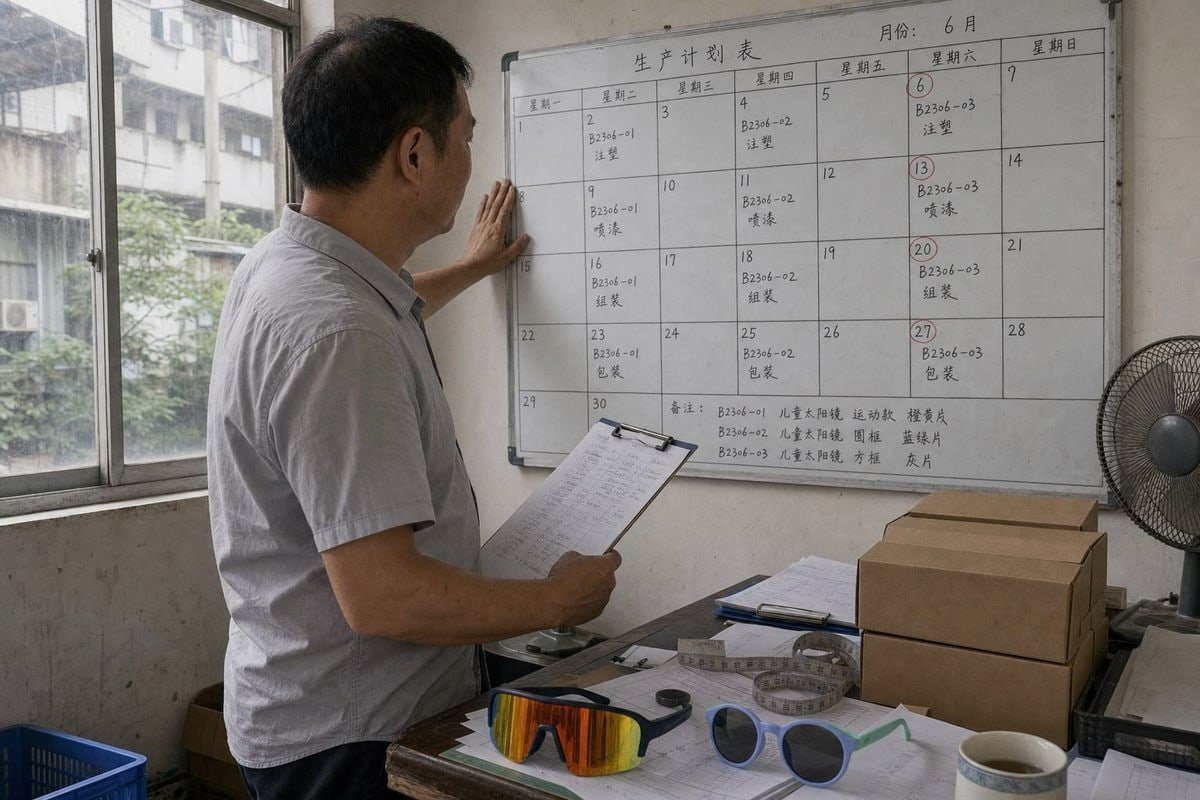 生产计划表
月份： 6月
星期一 星期二 星期三 星期四 星期五 星期六 星期日
1 2 3 4 5 6 7
B2306-01 B2306-02 B2306-03
注塑 注塑 注塑
8 9 10 11 12 13 14
B2306-01 B2306-02 B2306-03
喷漆 喷漆 喷漆
15 16 17 18 19 20 21
B2306-01 B2306-02 B2306-03
组装 组装 组装
22 23 24 25 26 27 28
B2306-01 B2306-02 B2306-03
包装 包装 包装
29 30
备注： B2306-01 儿童太阳镜 运动款 橙黄片
B2306-02 儿童太阳镜 圆框 蓝绿片
B2306-03 儿童太阳镜 方框 灰片